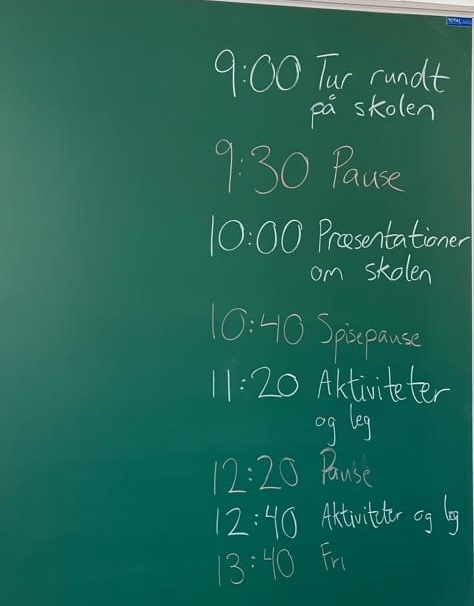 9:00 Tur rundt
på skolen
9:30 Pause
10:00 Præsentationer
om skolen
10:40 Spisepause
11:20 Aktiviteter
og leg
12:20 Pause
12:40 Aktiviteter og leg
13:40 Fri